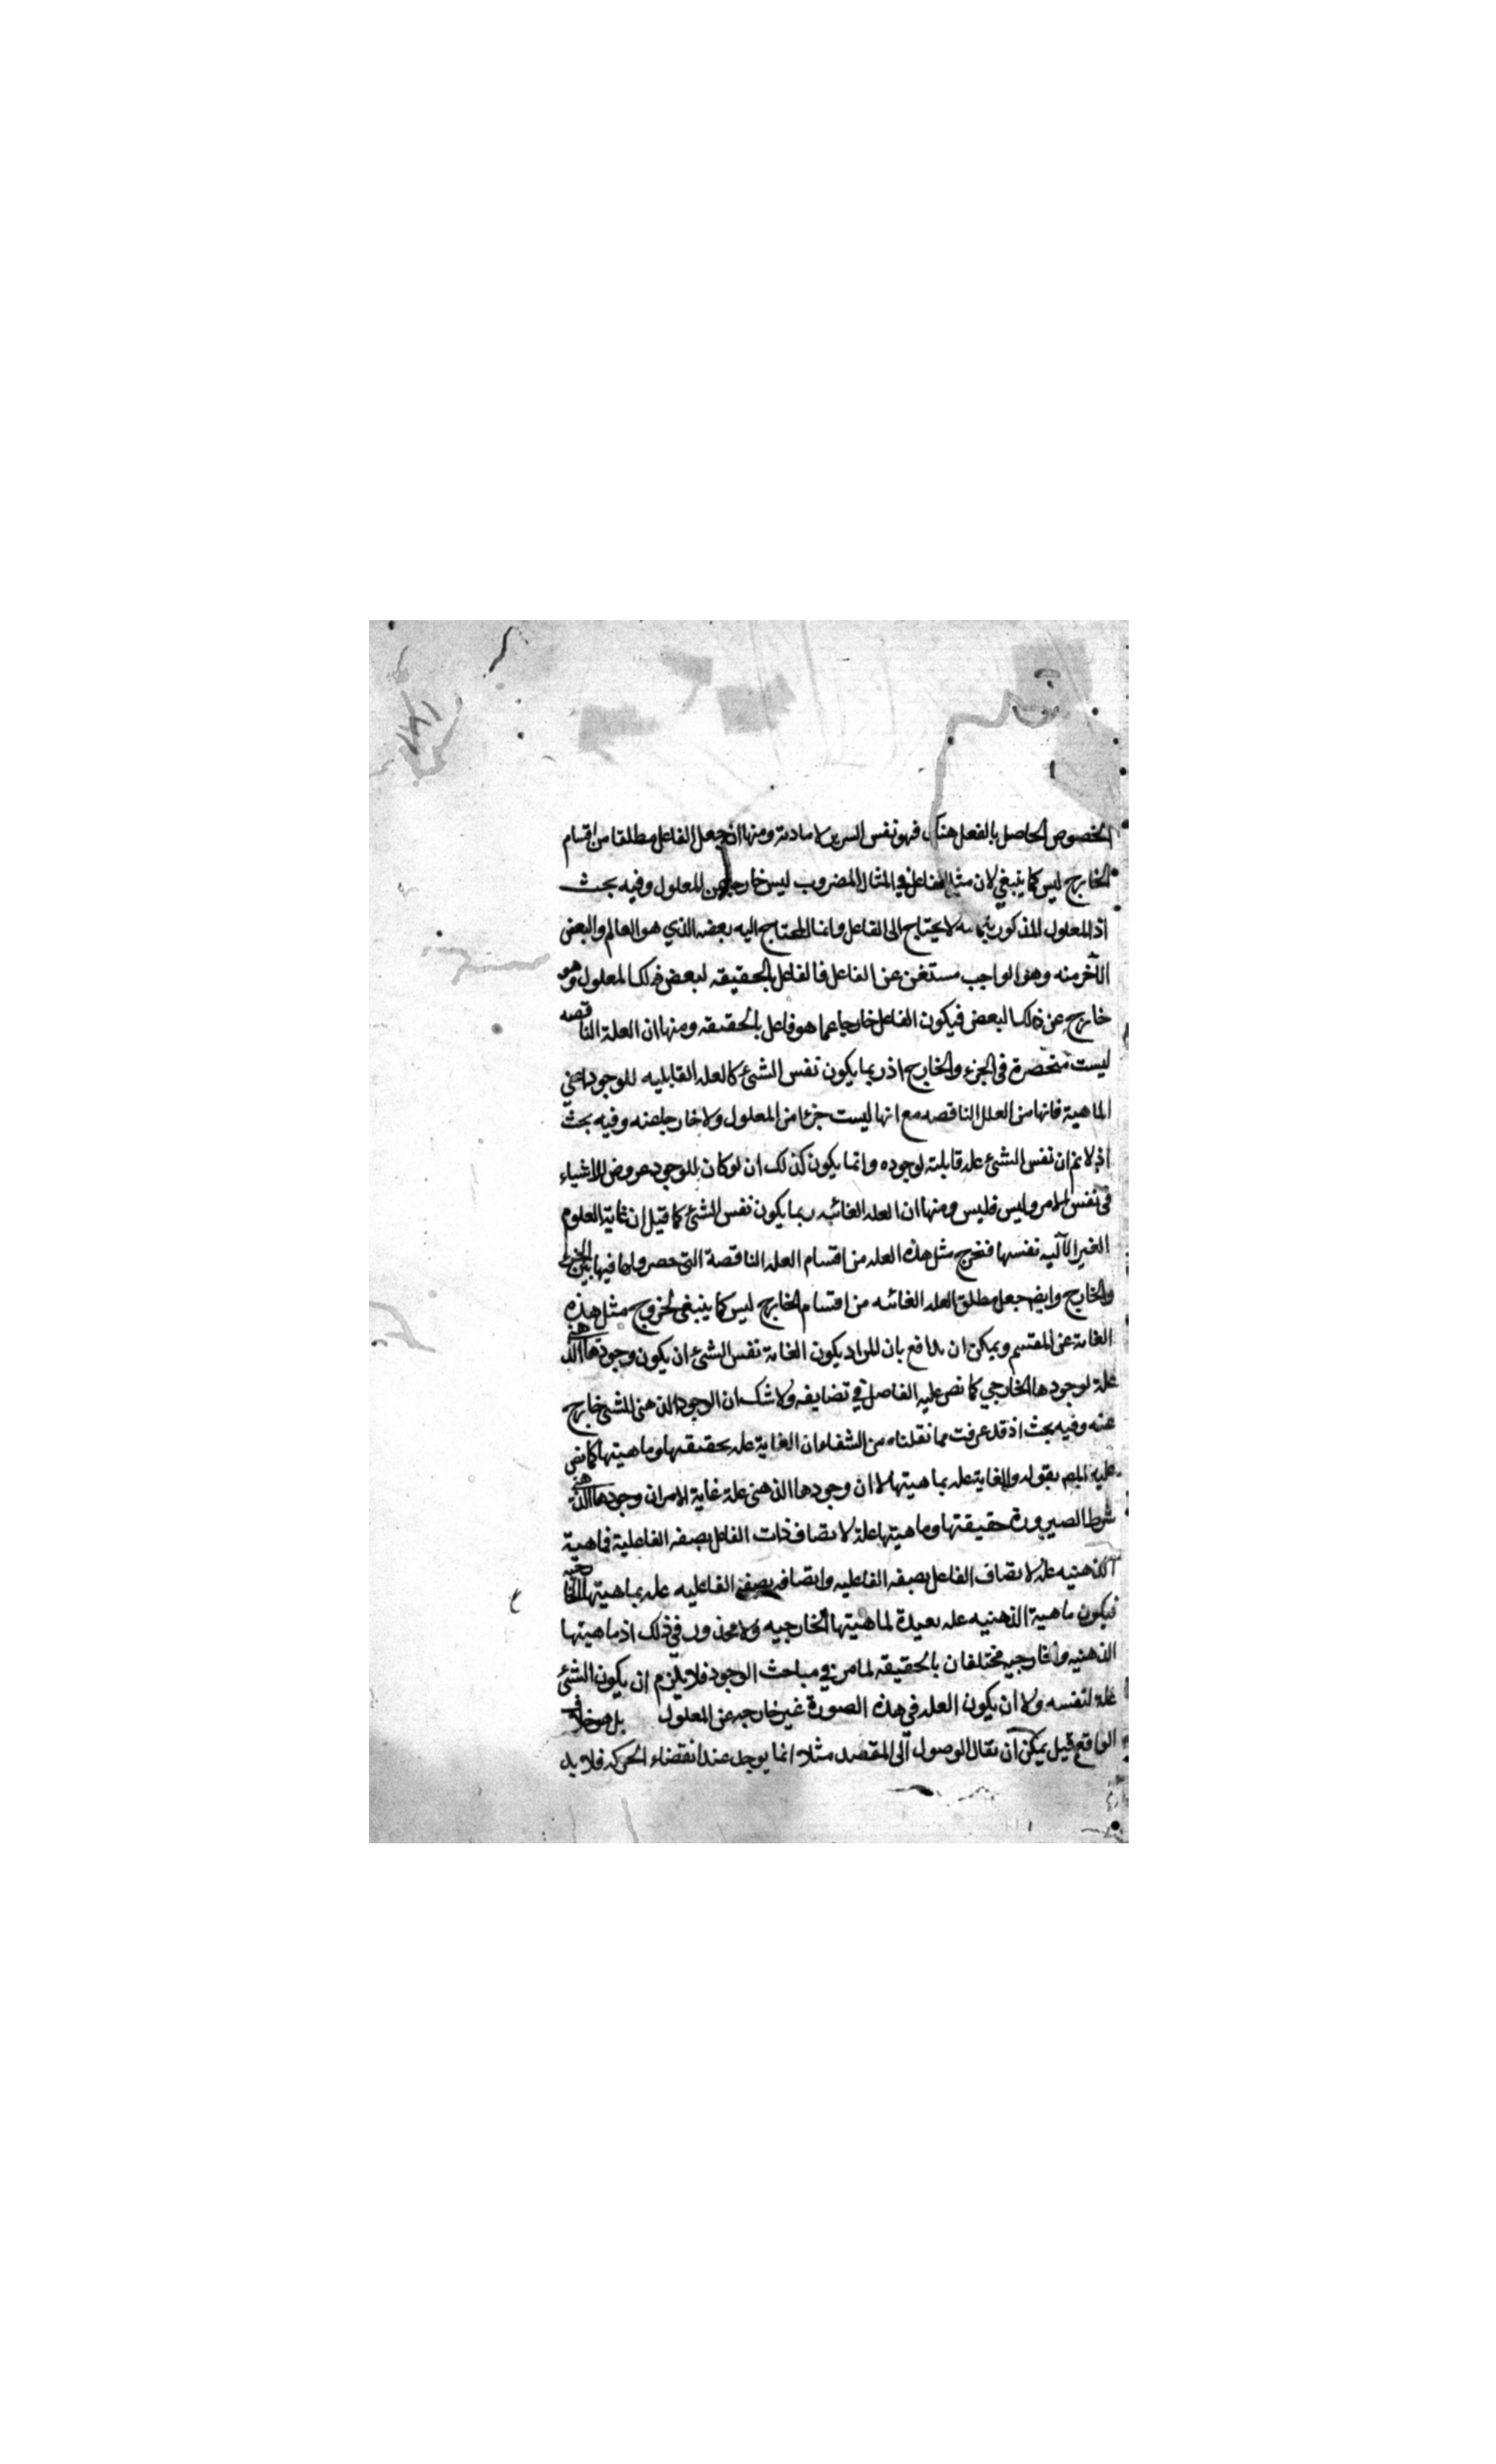 المخصوص الحاصل بالفعل هناك فهو نفس السرير لا مادته ومنها ان جعل الفاعل مطلقا من اقسام
الخارج ليس كما ينبغي لان مثل الفاعل في المثال المضروب ليس خارجا عن المعلول وفيه بحث
اذ المعلول المذكور بتمامه لا يحتاج الى الفاعل وانما المحتاج اليه بعضه الذي هو العالم والبعض
الآخر منه وهو الواجب مستغن عن الفاعل فالفاعل بالحقيقه لبعض ذلك المعلول وهو
خارج عن ذلك البعض فيكون الفاعل خارجا عما هو فاعل بالحقيقه ومنها ان العلة الناقصه
ليست منحصرة في الجزء والخارج اذ ربما يكون نفس الشئ كالعله القابليه للوجود اعني
الماهية فانها من العلل الناقصه مع انها ليست جزئا من المعلول ولا خارجا عنه وفيه بحث
اذ لا نم ان نفس الشئ عله قابلته لوجوده وانما يكون كذلك ان لو كان للوجود عروض للاشياء
في نفس الامر وليس فليس ومنها ان العله الغائيه ربما يكون نفس الشئ كما قيل ان غاية العلوم
الغير الآليه نفسها فخرج مثل هذه العله من اقسام العله الناقصة التي حصروها فيها بين الجزء
والخارج وايضا جعل مطلق العله الغائيه من اقسام الخارج ليس كما ينبغي لخروج مثل هذه
الغاية عن المقسم ويمكن ان يدافع بان المراد بكون الغاية نفس الشئ ان يكون وجودها الذهني
علة لوجودها الخارجي كما نص عليه الفاضل في تصانيفه ولا شك ان الوجود الذهني للشئ خارج
عنه وفيه بحث اذ قد عرفت مما نقلناه من الشفاء ان الغاية عله بحقيقتها وماهيتها كما نص
عليه المص بقوله والغاية عله بماهيتها لا ان وجودها الذهني علة غاية الامر ان وجودها الذهني
شرط الصيرورة حقيقتها وماهيتها علة لاتصاف ذات الفاعل بصفه الفاعلية فماهية
الذهنيه علة لاتصاف الفاعل بصفه الفاعليه واتصافه بصفة الفاعليه عله بماهيتها الخارجيه
فيكون ماهية الذهنيه عله بعيدة لماهيتها الخارجيه ولا محذور في ذلك اذ ماهيتها
الذهنيه والخارجيه مختلفان بالحقيقه لما مر في مباحث الوجود فلا يلزم ان يكون الشئ
علة لنفسه ولا ان يكون العله في هذه الصورة غير خارجه عن المعلول بل هو خلاف
الواقع قيل يمكن ان يقال الوصول الى المقصد مثلا انما يوجد عند انقضاء الحركه فلا بد